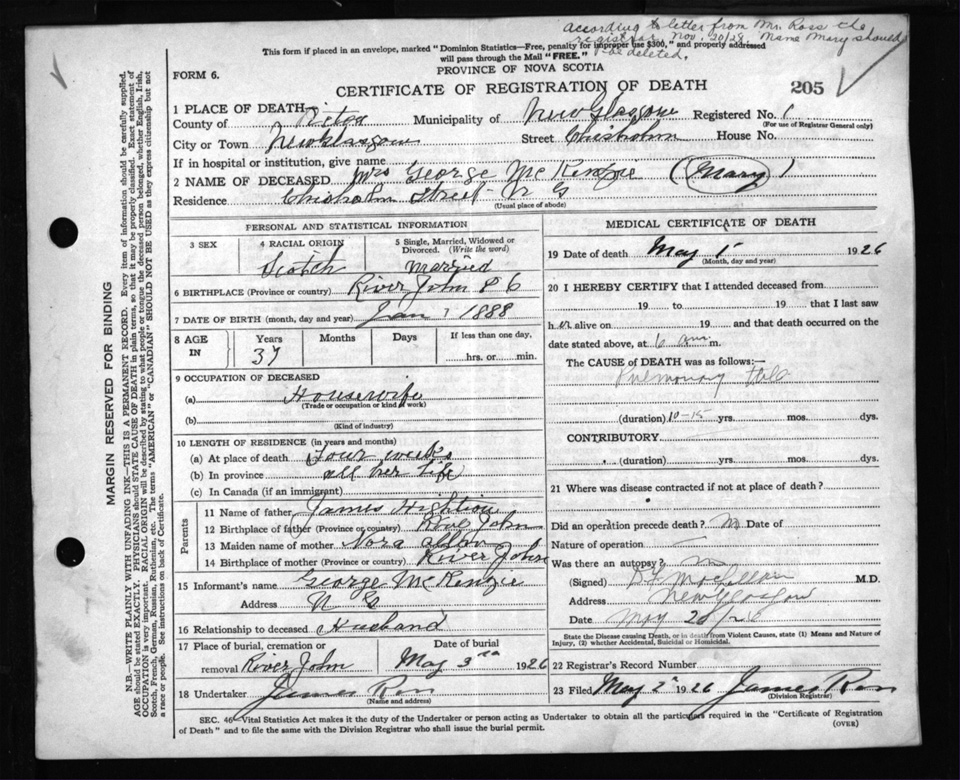 according to letter from Mr. Ross the
registrar, Nov. 20/28. Name Mary should
be deleted.
This form if placed in an envelope, marked "Dominion Statistics—Free, penalty for improper use $300," and properly addressed
will pass through the Mail "FREE."
PROVINCE OF NOVA SCOTIA
FORM 6.
CERTIFICATE OF REGISTRATION OF DEATH
205
1 PLACE OF DEATH
County of Pictou Municipality of New Glasgow Registered No. 1
(For use of Registrar General only)
City or Town New Glasgow Street Chisholm House No.
If in hospital or institution, give name
2 NAME OF DECEASED Mrs George McKenzie (Mary)
Residence Chisholm Street N G
(Usual place of abode)
PERSONAL AND STATISTICAL INFORMATION
3 SEX
4 RACIAL ORIGIN
Scotch
5 Single, Married, Widowed or
Divorced. (Write the word)
Married
6 BIRTHPLACE (Province or country) River John
7 DATE OF BIRTH (month, day and year) Jan 1888
8 AGE
IN
Years
37
Months
Days
If less than one day,
hrs. or min.
9 OCCUPATION OF DECEASED
(a) Housewife
(Trade or occupation or kind of work)
(b)
(Kind of industry)
10 LENGTH OF RESIDENCE (in years and months)
(a) At place of death Four weeks
(b) In province all her life
(c) In Canada (if an immigrant)
Parents
11 Name of father James
12 Birthplace of father (Province or country) River John
13 Maiden name of mother Nora
14 Birthplace of mother (Province or country) River John
15 Informant's name George McKenzie
Address N G
16 Relationship to deceased Husband
17 Place of burial, cremation or
removal River John
Date of burial
May 3rd 1926
18 Undertaker James Ross
(Name and address)
MEDICAL CERTIFICATE OF DEATH
19 Date of death May 1 1926
(Month, day and year)
20 I HEREBY CERTIFY that I attended deceased from
19 to 19 that I last saw
h er alive on 19 and that death occurred on the
date stated above, at 6 am m.
The CAUSE of DEATH was as follows:—
Pulmonary
(duration) 10-15 yrs. mos. dys.
CONTRIBUTORY
(duration) yrs. mos. dys.
21 Where was disease contracted if not at place of death?
Did an operation precede death? No Date of
Nature of operation
Was there an autopsy? no
(Signed) M.D.
Address New Glasgow
Date May
State the Disease causing Death, or in death from Violent Causes, state (1) Means and Nature of
Injury, (2) whether Accidental, Suicidal or Homicidal.
22 Registrar's Record Number
23 Filed May 2 1926 James Ross
(Division Registrar)
SEC. 46 Vital Statistics Act makes it the duty of the Undertaker or person acting as Undertaker to obtain all the particulars required in the "Certificate of Registration
of Death" and to file the same with the Division Registrar who shall issue the burial permit.
(OVER)
MARGIN RESERVED FOR BINDING
N.B.—WRITE PLAINLY WITH UNFADING INK—THIS IS A PERMANENT RECORD. Every item of information should be carefully supplied.
AGE should be stated EXACTLY. PHYSICIANS should STATE CAUSE OF DEATH in plain terms, so that it may be properly classified. Exact statement of
OCCUPATION is very important. RACIAL ORIGIN will be described by stating to what people or tongue the deceased person belonged, whether English, Irish,
Scotch, French, German, Russian, Ruthenian, etc. The terms "AMERICAN" or "CANADIAN" SHOULD NOT BE USED as they express citizenship but not
a race or people. See instructions on back of Certificate.